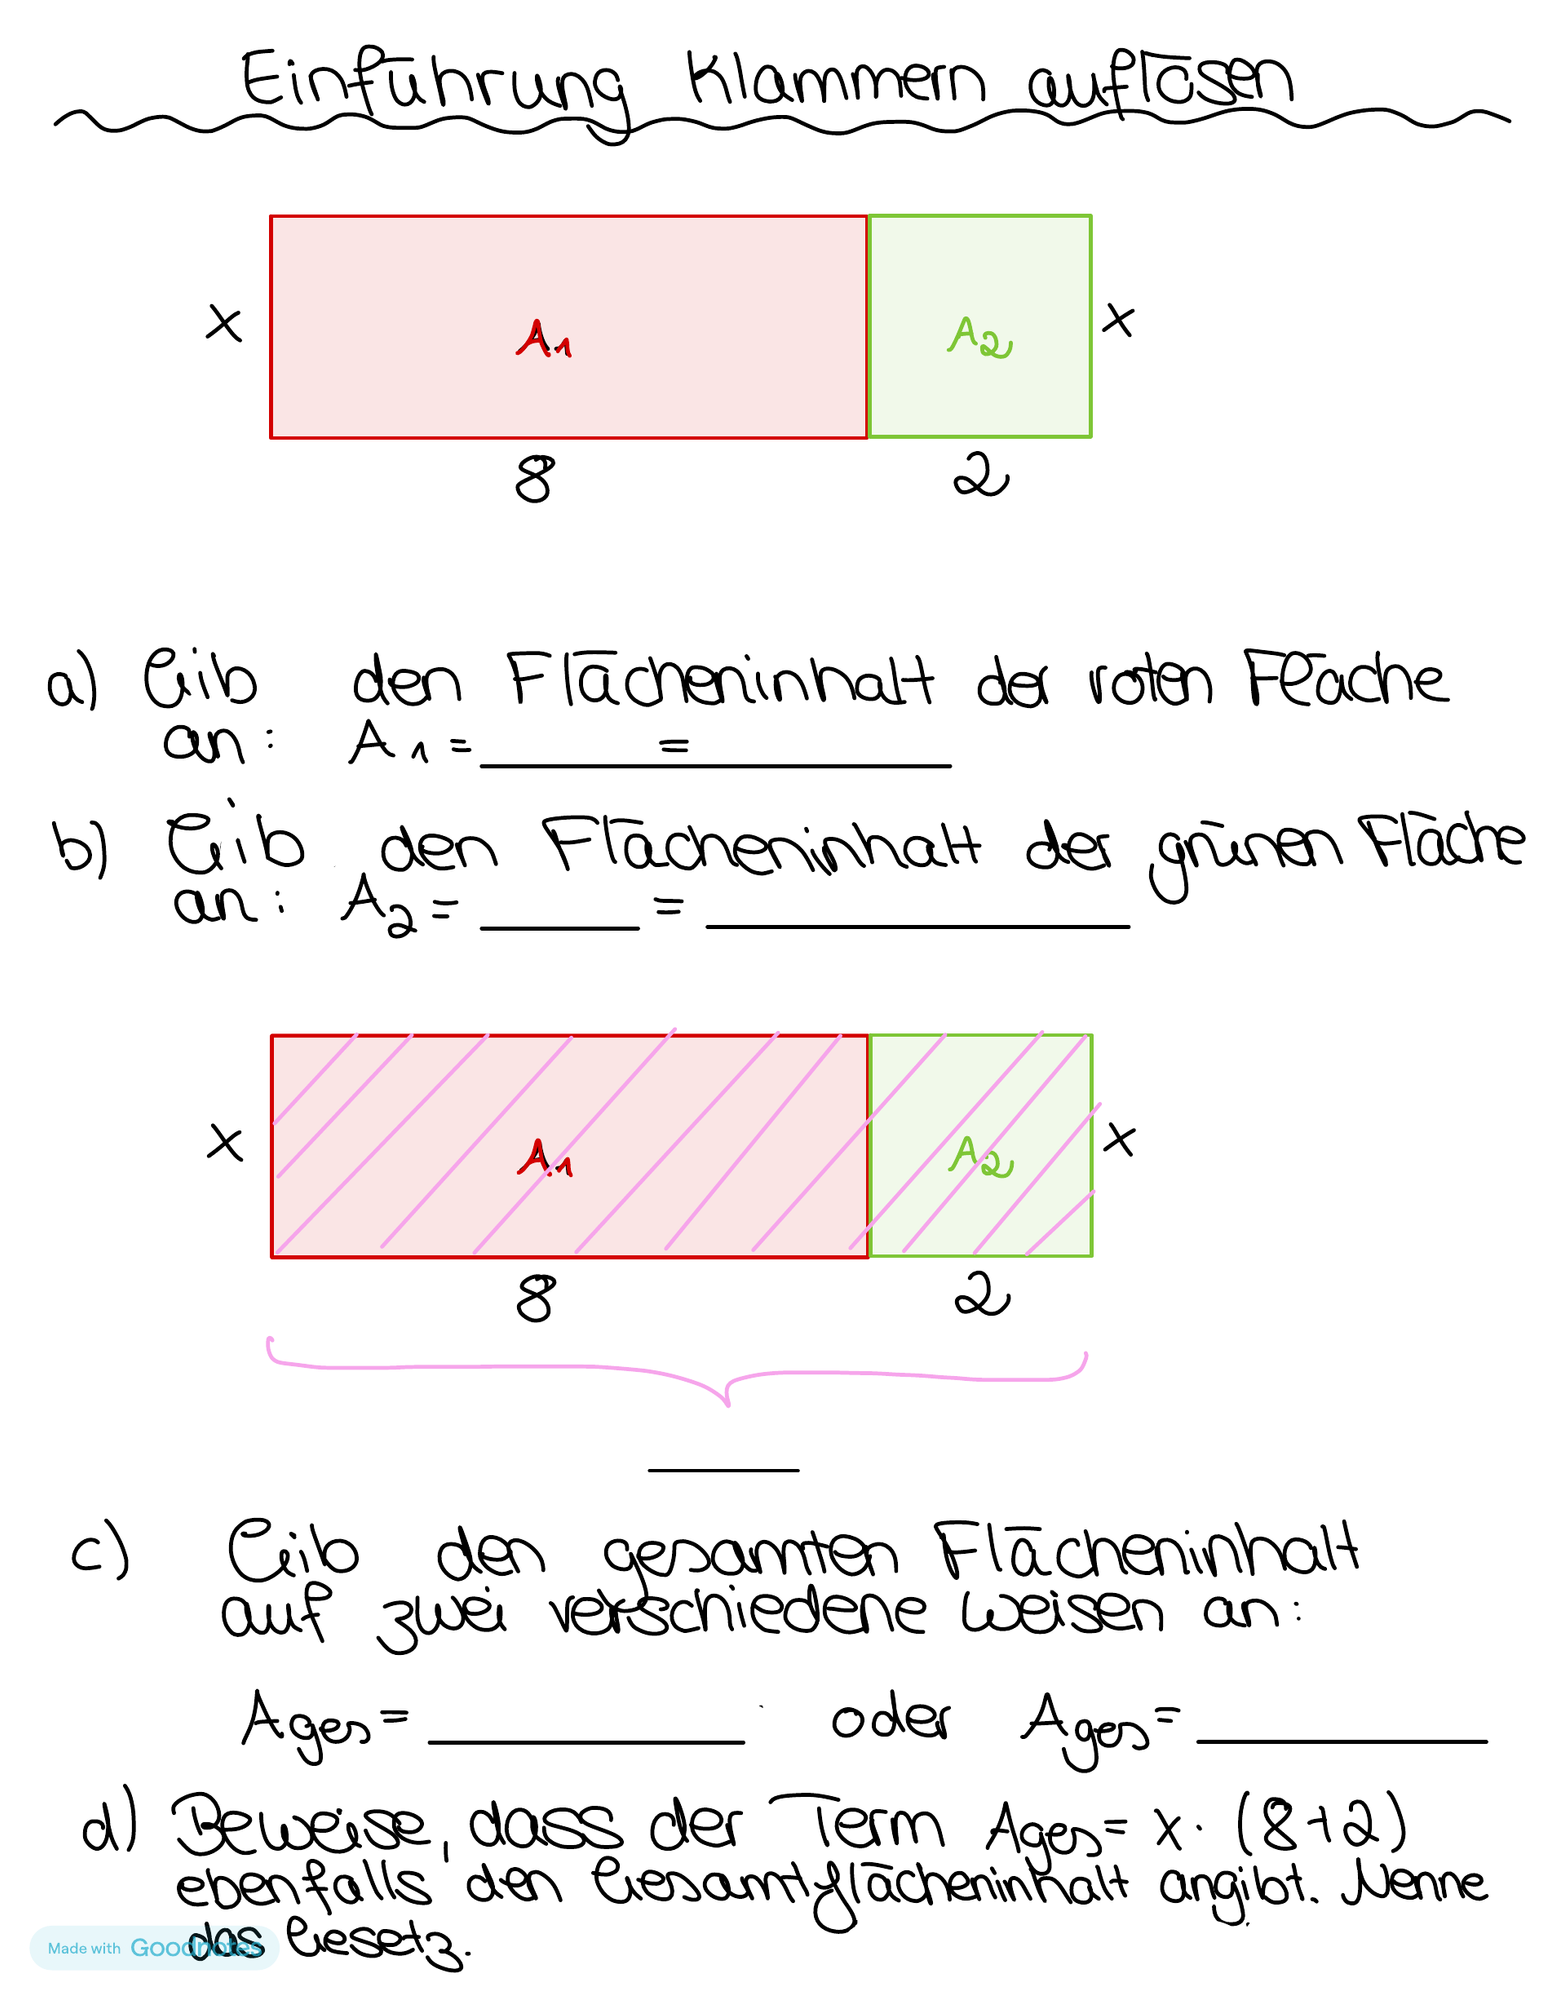 Einführung Klammern auflösen
x A₁ A₂ x
8 2
a) Gib den Flächeninhalt der roten Fläche
an: A₁ = ______ = ______
b) Gib den Flächeninhalt der grünen Fläche
an: A₂ = ______ = ______
x A₁ A₂ x
8 2
______
c) Gib den gesamten Flächeninhalt
auf zwei verschiedene Weisen an:
Ages = ______ oder Ages = ______
d) Beweise, dass der Term Ages = x · (8+2)
ebenfalls den Gesamtflächeninhalt angibt. Nenne
das Gesetz.
Made with Goodnotes